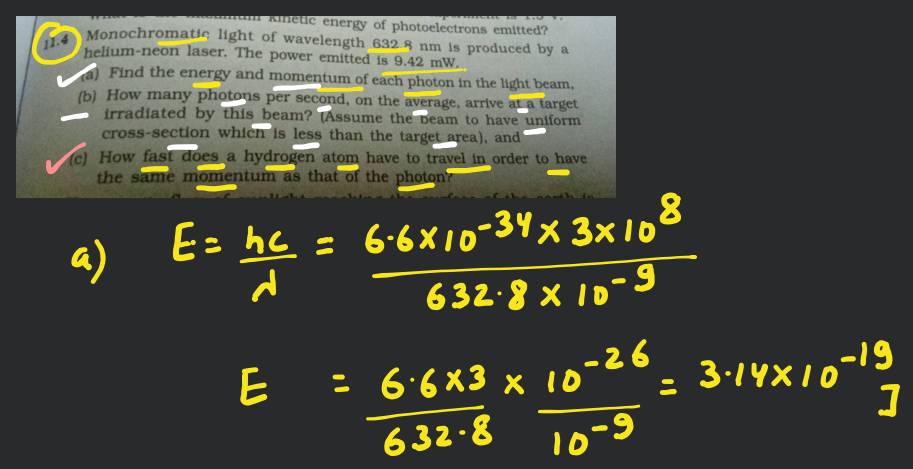 kinetic energy of photoelectrons emitted?
11.4 Monochromatic light of wavelength 632.8 nm is produced by a
helium-neon laser. The power emitted is 9.42 mW.
(a) Find the energy and momentum of each photon in the light beam,
(b) How many photons per second, on the average, arrive at a target
irradiated by this beam? (Assume the beam to have uniform
cross-section which is less than the target area), and
(c) How fast does a hydrogen atom have to travel in order to have
the same momentum as that of the photon?
a) E = hc/λ = 6.6×10⁻³⁴ × 3×10⁸ / 632.8 × 10⁻⁹
E = 6.6×3/632.8 × 10⁻²⁶/10⁻⁹ = 3.14×10⁻¹⁹ J